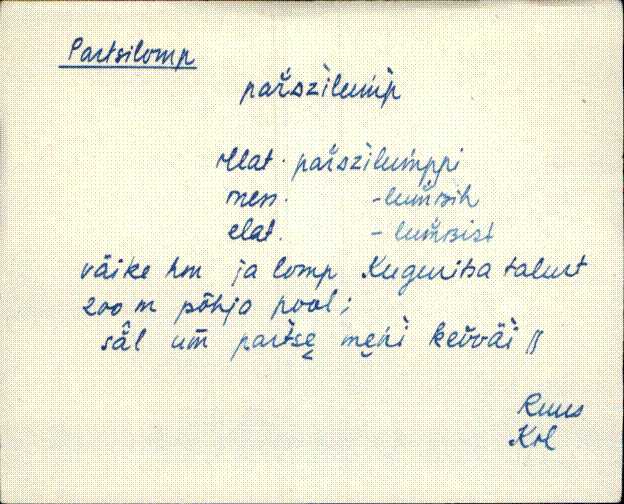 Partsilomp
paŕszìlum̀p
illat. paŕszìlum̀ppi
iness. -lum̀ʙih
elat. - lum̀ʙist
väike hm ja lomp Kuguritsa talust
200 m põhja pool;
sä̂l um̄ paŕtsę mę̀ni keìvväi ∥
Ruus
Krl